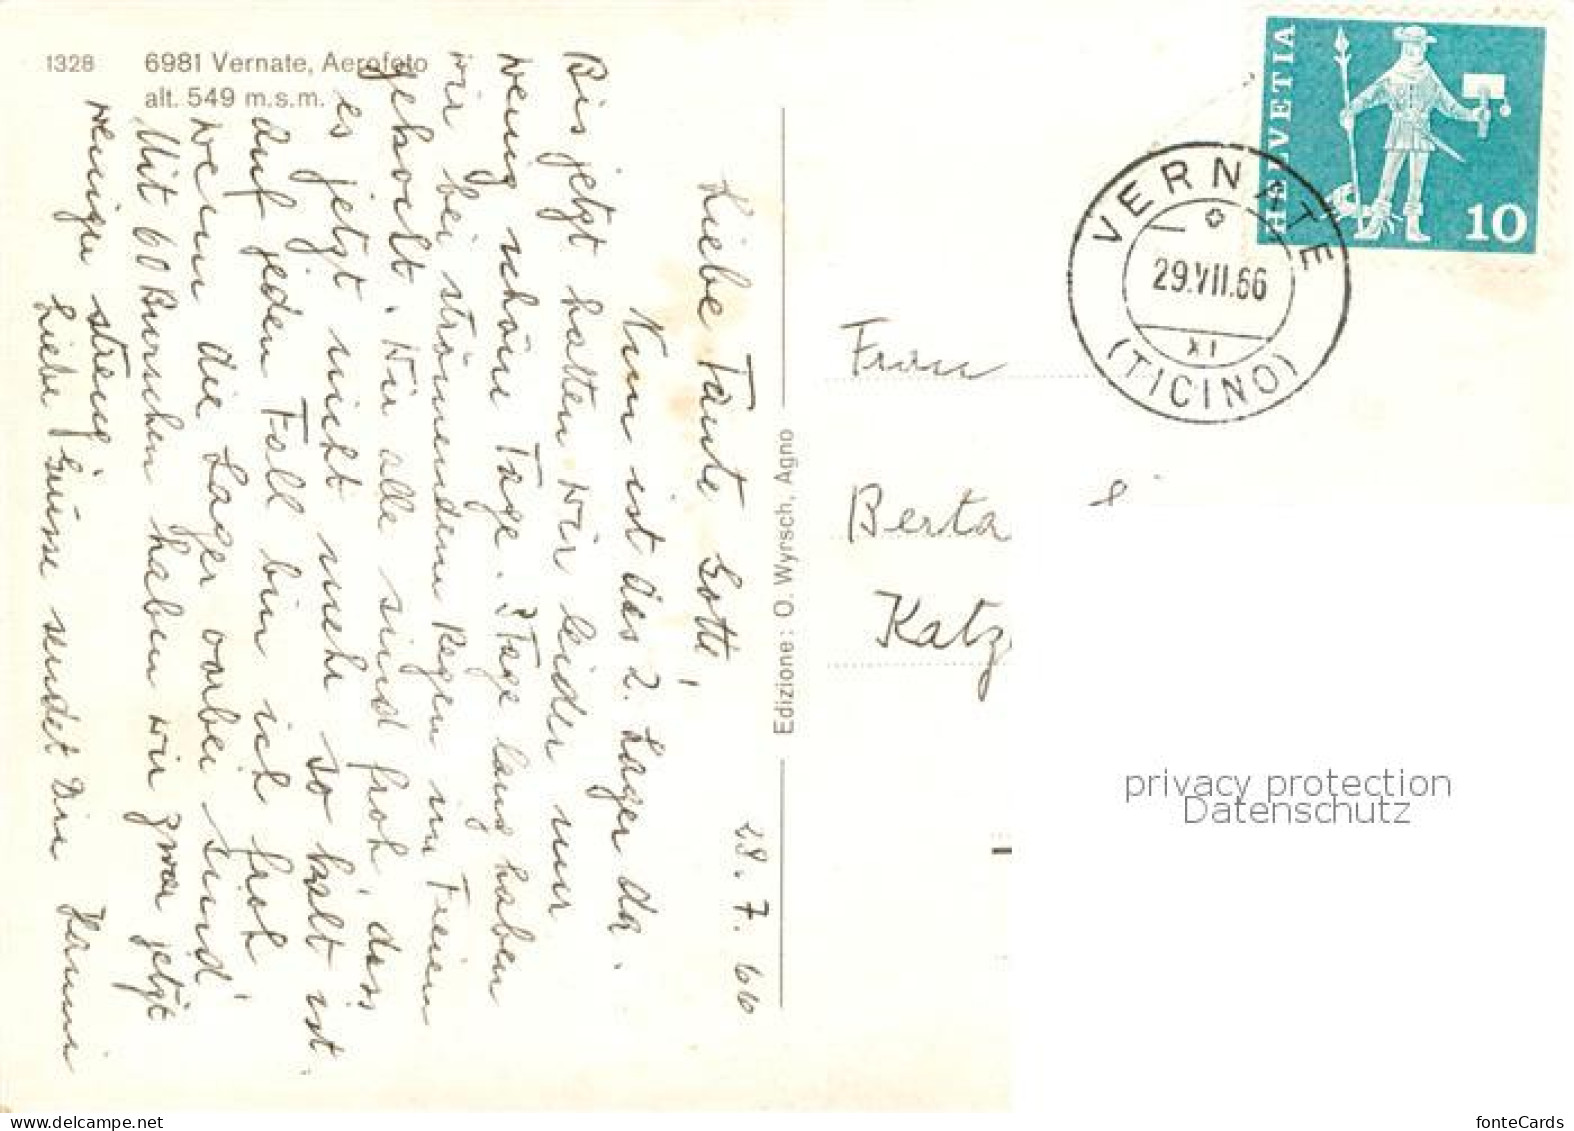 1328 6981 Vernate, Aerofoto
alt. 549 m.s.m.
28.7.66
Liebe Tante Gotte!
Nun ist das 2. Lager da.
Bis jetzt hatten wir leider nur
wenig schöne Tage. 3 Tage lang haben
wir bei strömendem Regen im Freien
gekocht. Wir alle sind froh, dass
es jetzt nicht mehr so kalt ist.
Auf jeden Fall bin ich froh
wenn die Lager vorbei sind!
Mit 60 Burschen haben wir zwar jetzt
weniger streng.
Liebe Grüsse sendet Dir Hanni
Edizione: O. Wyrsch, Agno
HELVETIA
10
VERNATE
29.VII.66
XI
(TICINO)
Frau
Berta
Katz
privacy protection
Datenschutz
www.delcampe.net
fonteCards